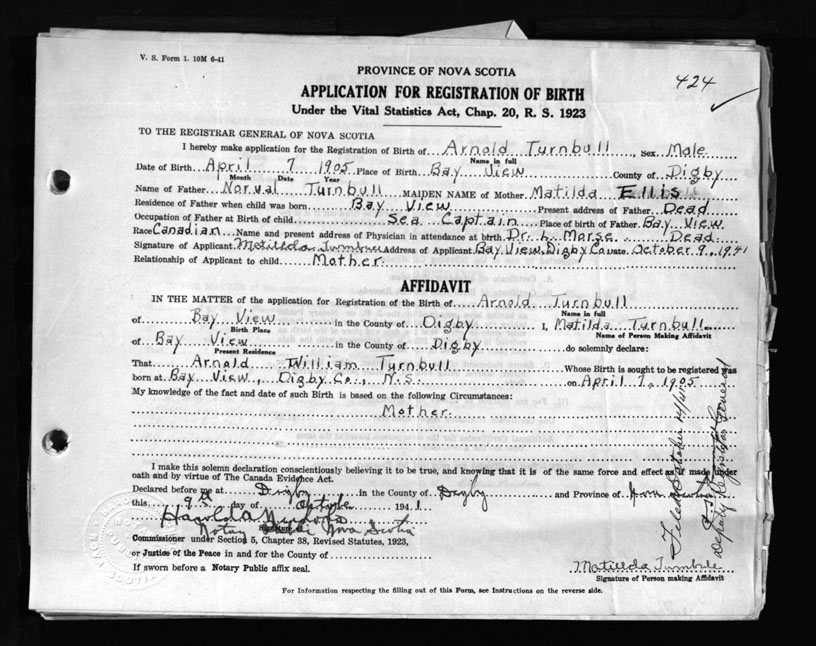 V. S. Form 1. 10M 6-41
424
PROVINCE OF NOVA SCOTIA
APPLICATION FOR REGISTRATION OF BIRTH
Under the Vital Statistics Act, Chap. 20, R. S. 1923
TO THE REGISTRAR GENERAL OF NOVA SCOTIA
I hereby make application for the Registration of Birth of Arnold Turnbull, Sex Male
Name in full
Date of Birth April 7 1905 Place of Birth Bay View County of Digby
Month Date Year
Name of Father Norval Turnbull MAIDEN NAME of Mother Matilda Ellis
Residence of Father when child was born Bay View Present address of Father Dead
Occupation of Father at Birth of child Sea Captain Place of birth of Father Bay View
Race Canadian Name and present address of Physician in attendance at birth Dr. L. Morse. Dead
Signature of Applicant Matillda Turnbull Address of Applicant Bay View, Digby Co. Date October 9, 1941
Relationship of Applicant to child Mother.
AFFIDAVIT
IN THE MATTER of the application for Registration of the Birth of Arnold Turnbull
Name in full
of Bay View in the County of Digby I, Matilda Turnbull
Birth Place Name of Person Making Affidavit
of Bay View in the County of Digby do solemnly declare:
Present Residence
That Arnold William Turnbull Whose Birth is sought to be registered was
born at Bay View, Digby Co., N.S. on April 7, 1905
My knowledge of the fact and date of such Birth is based on the following Circumstances:
Mother.
I make this solemn declaration conscientiously believing it to be true, and knowing that it is of the same force and effect as if made under
oath and by virtue of The Canada Evidence Act.
Declared before me at Digby in the County of Digby and Province of Nova Scotia
this 9th day of October 1941
Harold
Notary Public Nova Scotia
Commissioner under Section 5, Chapter 38, Revised Statutes, 1923,
or Justice of the Peace in and for the County of
If sworn before a Notary Public affix seal.
Matillda Turnbull
Signature of Person making Affidavit
Filed October 14/41
Deputy Registrar General
For Information respecting the filling out of this Form, see Instructions on the reverse side.